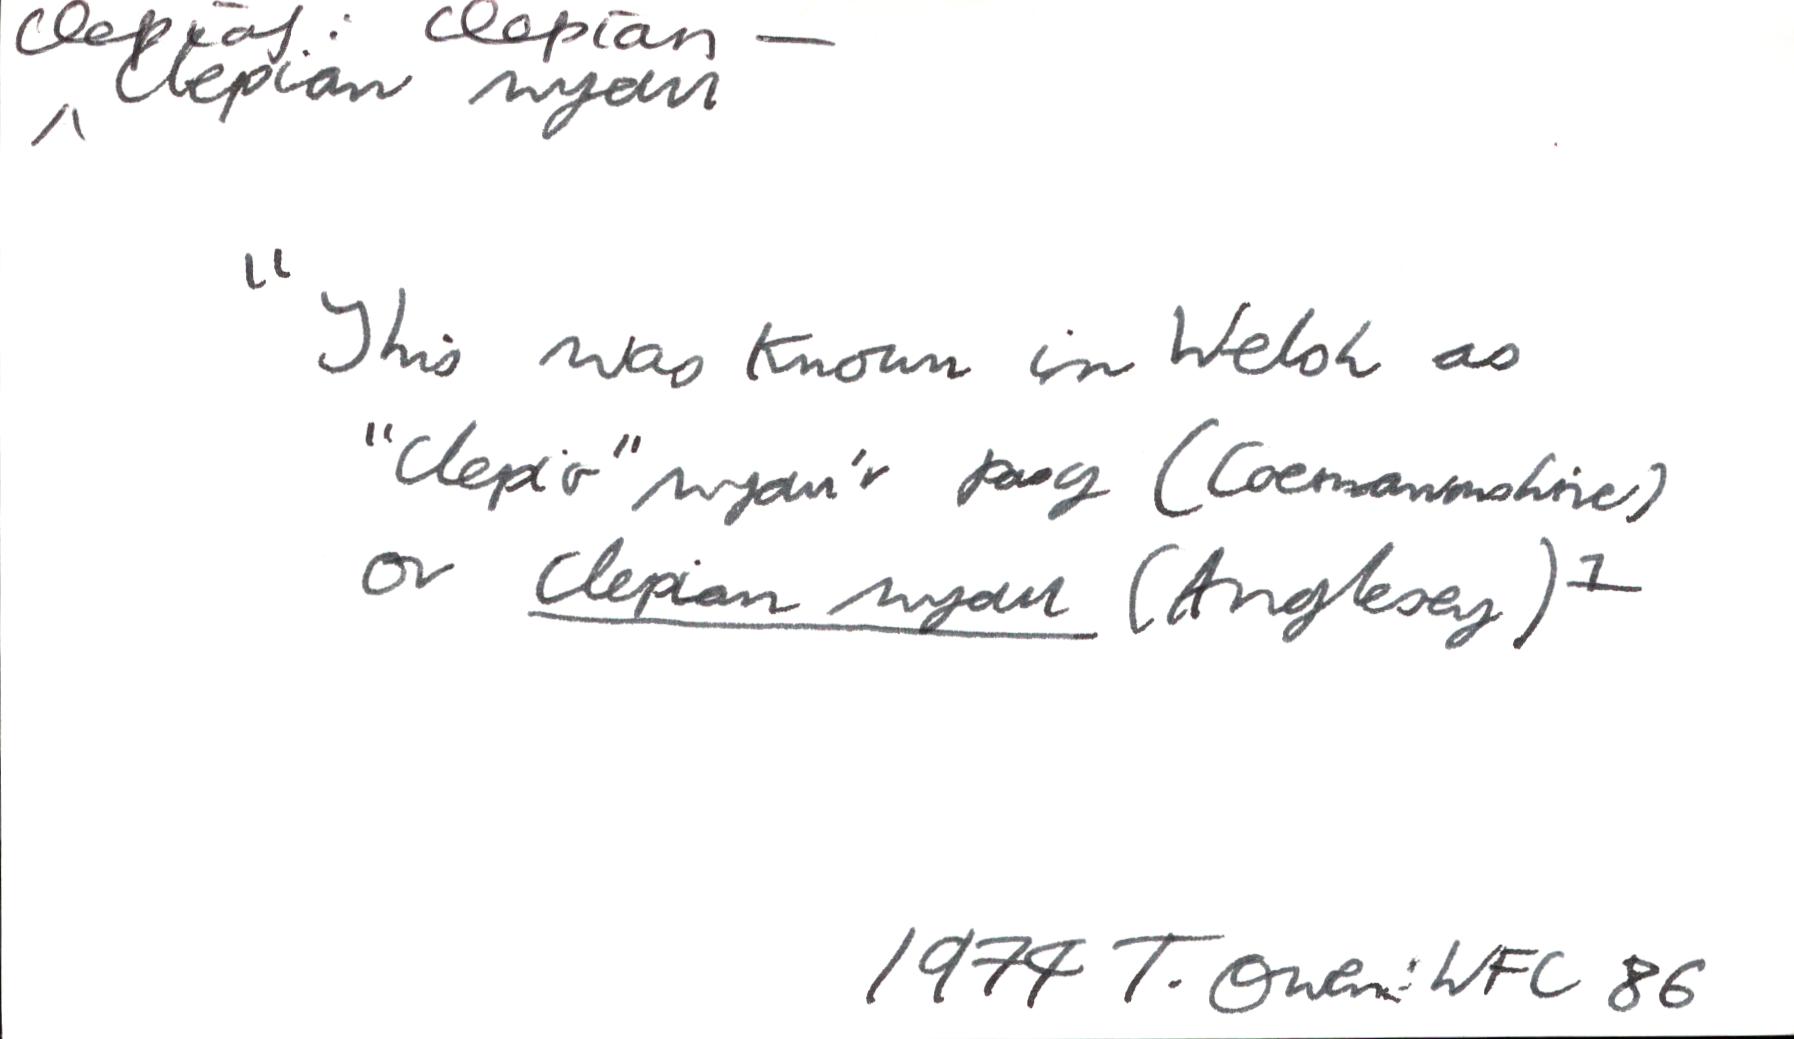 clepiaf: clepian —
clepian wyau
"This was known in Welsh as
"clepio" wyau'r pasg (Caernarvonshire)
or clepian wyau (Anglesey)1
1974 T. Owen: WFC 86